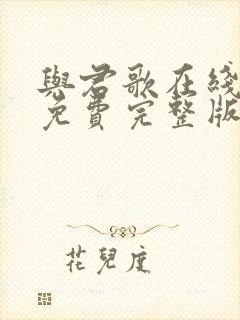 與君歌在綫
免費完整版
花兒度